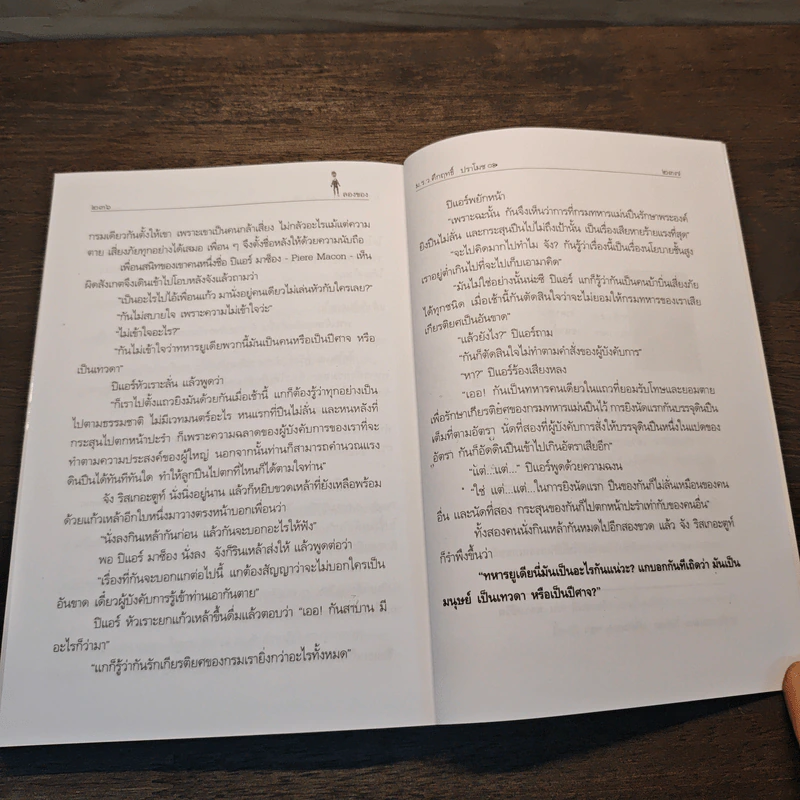 ๒๓๖
ลองของ
กรมเดียวกันตั้งให้เขา เพราะเขาเป็นคนกล้าเสี่ยง ไม่กลัวอะไรแม้แต่ความ
ตาย เสี่ยงภัยทุกอย่างได้เสมอ เพื่อน ๆ จึงตั้งชื่อหลังให้ด้วยความนับถือ
เพื่อนสนิทของเขาคนหนึ่งชื่อ ปิแอร์ มาซ็อง - Piere Macon - เห็น
ผิดสังเกตจึงเดินเข้าไปโอบหลังจังแล้วถามว่า
"เป็นอะไรไปไอ้เพื่อนแก้ว มานั่งอยู่คนเดียวไม่เล่นหัวกับใครเลย?"
"กันไม่สบายใจ เพราะความไม่เข้าใจว่ะ"
"ไม่เข้าใจอะไร?"
"กันไม่เข้าใจว่าทหารยูเดียพวกนี้มันเป็นคนหรือเป็นปีศาจ หรือ
เป็นเทวดา"
ปิแอร์หัวเราะลั่น แล้วพูดว่า
"ก็เราไปตั้งแถวยิงมันด้วยกันเมื่อเช้านี้ แกก็ต้องรู้ว่าทุกอย่างเป็น
ไปตามธรรมชาติ ไม่มีเวทมนตร์อะไร หนแรกที่ปืนไม่ลั่น และหนหลังที่
กระสุนไปตกหน้าปะรำ ก็เพราะความฉลาดของผู้บังคับการของเราที่จะ
ทำตามความประสงค์ของผู้ใหญ่ นอกจากนั้นท่านก็สามารถคำนวณแรง
ดินปืนได้ทันทีทันใด ทำให้ลูกปืนไปตกที่ไหนก็ได้ตามใจท่าน"
จัง ริสเกอะตูท์ นั่งนิ่งอยู่นาน แล้วก็หยิบขวดเหล้าที่ยังเหลือพร้อม
ด้วยแก้วเหล้าอีกใบหนึ่งมาวางตรงหน้าบอกเพื่อนว่า
"นั่งลงกินเหล้ากันก่อน แล้วกันจะบอกอะไรให้ฟัง"
พอ ปิแอร์ มาซ็อง นั่งลง จังก็รินเหล้าส่งให้ แล้วพูดต่อว่า
"เรื่องที่กันจะบอกแกต่อไปนี้ แกต้องสัญญาว่าจะไม่บอกใครเป็น
อันขาด เดี๋ยวผู้บังคับการรู้เข้าท่านเอากันตาย"
ปิแอร์ หัวเราะยกแก้วเหล้าขึ้นดื่มแล้วตอบว่า "เออ! กันสาบาน มี
อะไรก็ว่ามา"
"แกก็รู้ว่ากันรักเกียรติยศของกรมเรายิ่งกว่าอะไรทั้งหมด"
ม.ร.ว.คึกฤทธิ์ ปราโมช
๒๓๗
ปิแอร์พยักหน้า
"เพราะฉะนั้น กันจึงเห็นว่าการที่กรมทหารแม่นปืนรักษาพระองค์
ยิงปืนไม่ลั่น และกระสุนปืนไปไม่ถึงเป้านั้น เป็นเรื่องเสียหายร้ายแรงที่สุด"
"จะไปคิดมากไปทำไม จัง? กันรู้ว่าเรื่องนี้เป็นเรื่องนโยบายชั้นสูง
เราอยู่ต่ำเกินไปที่จะไปเก็บเอามาคิด"
"มันไม่ใช่อย่างนั้นน่ะซี ปิแอร์ แกก็รู้ว่ากันเป็นคนบ้าบิ่นเสี่ยงภัย
ได้ทุกชนิด เมื่อเช้านี้กันตัดสินใจว่าจะไม่ยอมให้กรมทหารของเราเสีย
เกียรติยศเป็นอันขาด"
"แล้วยังไง?" ปิแอร์ถาม
"กันก็ตัดสินใจไม่ทำตามคำสั่งของผู้บังคับการ"
"หา?" ปิแอร์ร้องเสียงหลง
"เออ! กันเป็นทหารคนเดียวในแถวที่ยอมรับโทษและยอมตาย
เพื่อรักษาเกียรติยศของกรมทหารแม่นปืนไว้ การยิงนัดแรกกันบรรจุดินปืน
เต็มที่ตามอัตรา นัดที่สองที่ผู้บังคับการสั่งให้บรรจุดินปืนหนึ่งในแปดของ
อัตรา กันก็อัดดินปืนเข้าไปเกินอัตราเสียอีก"
"แต่...แต่..." ปิแอร์พูดด้วยความฉงน
"ใช่ แต่...แต่...ในการยิงนัดแรก ปืนของกันก็ไม่ลั่นเหมือนของคน
อื่น และนัดที่สอง กระสุนของกันก็ไปตกหน้าปะรำเท่ากับของคนอื่น"
ทั้งสองคนนั่งกินเหล้ากันหมดไปอีกสองขวด แล้ว จัง ริสเกอะตูท์
ก็รำพึงขึ้นว่า
"ทหารยูเดียนี่มันเป็นอะไรกันแน่วะ? แกบอกกันทีเถิดว่า มันเป็น
มนุษย์ เป็นเทวดา หรือเป็นปีศาจ?"